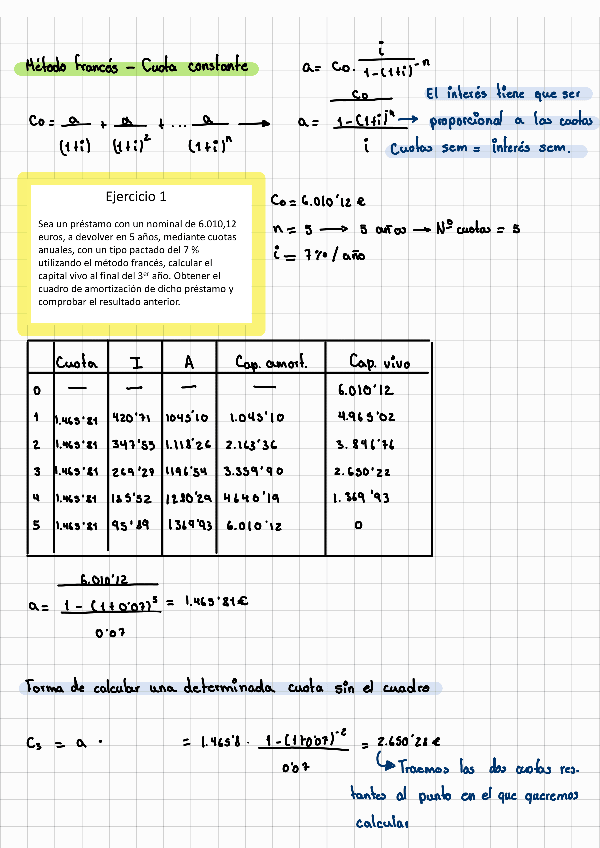 Método francés – Cuota constante
a = Co · i / 1-(1+i)^-n
Co = a/(1+i) + a/(1+i)^2 + ... a/(1+i)^n → a = Co / (1-(1+i)^n / i)
El interés tiene que ser
proporcional a las cuotas
Cuotas sem = interés sem.
Ejercicio 1
Sea un préstamo con un nominal de 6.010,12
euros, a devolver en 5 años, mediante cuotas
anuales, con un tipo pactado del 7 %
utilizando el método francés, calcular el
capital vivo al final del 3er año. Obtener el
cuadro de amortización de dicho préstamo y
comprobar el resultado anterior.
Co = 6.010'12 €
n = 5 → 5 años → Nº cuotas = 5
i = 7% / año
Cuota I A Cap. amort. Cap. vivo
0 — — — — 6.010'12
1 1.465'81 420'71 1045'10 1.045'10 4.965'02
2 1.465'81 347'55 1.118'26 2.163'36 3.896'76
3 1.465'81 269'27 1196'54 3.359'90 2.650'22
4 1.465'81 185'52 1280'29 4640'19 1.369'93
5 1.465'81 95'89 1369'93 6.010'12 0
a = 6.010'12 / (1-(1+0'07)^5 / 0'07) = 1.465'81€
Forma de calcular una determinada cuota sin el cuadro
C3 = a · = 1.465'8 · 1-(1+0'07)^-2 / 0'07 = 2.650'28 €
Traemos las dos cuotas res-
tantes al punto en el que queremos
calcular